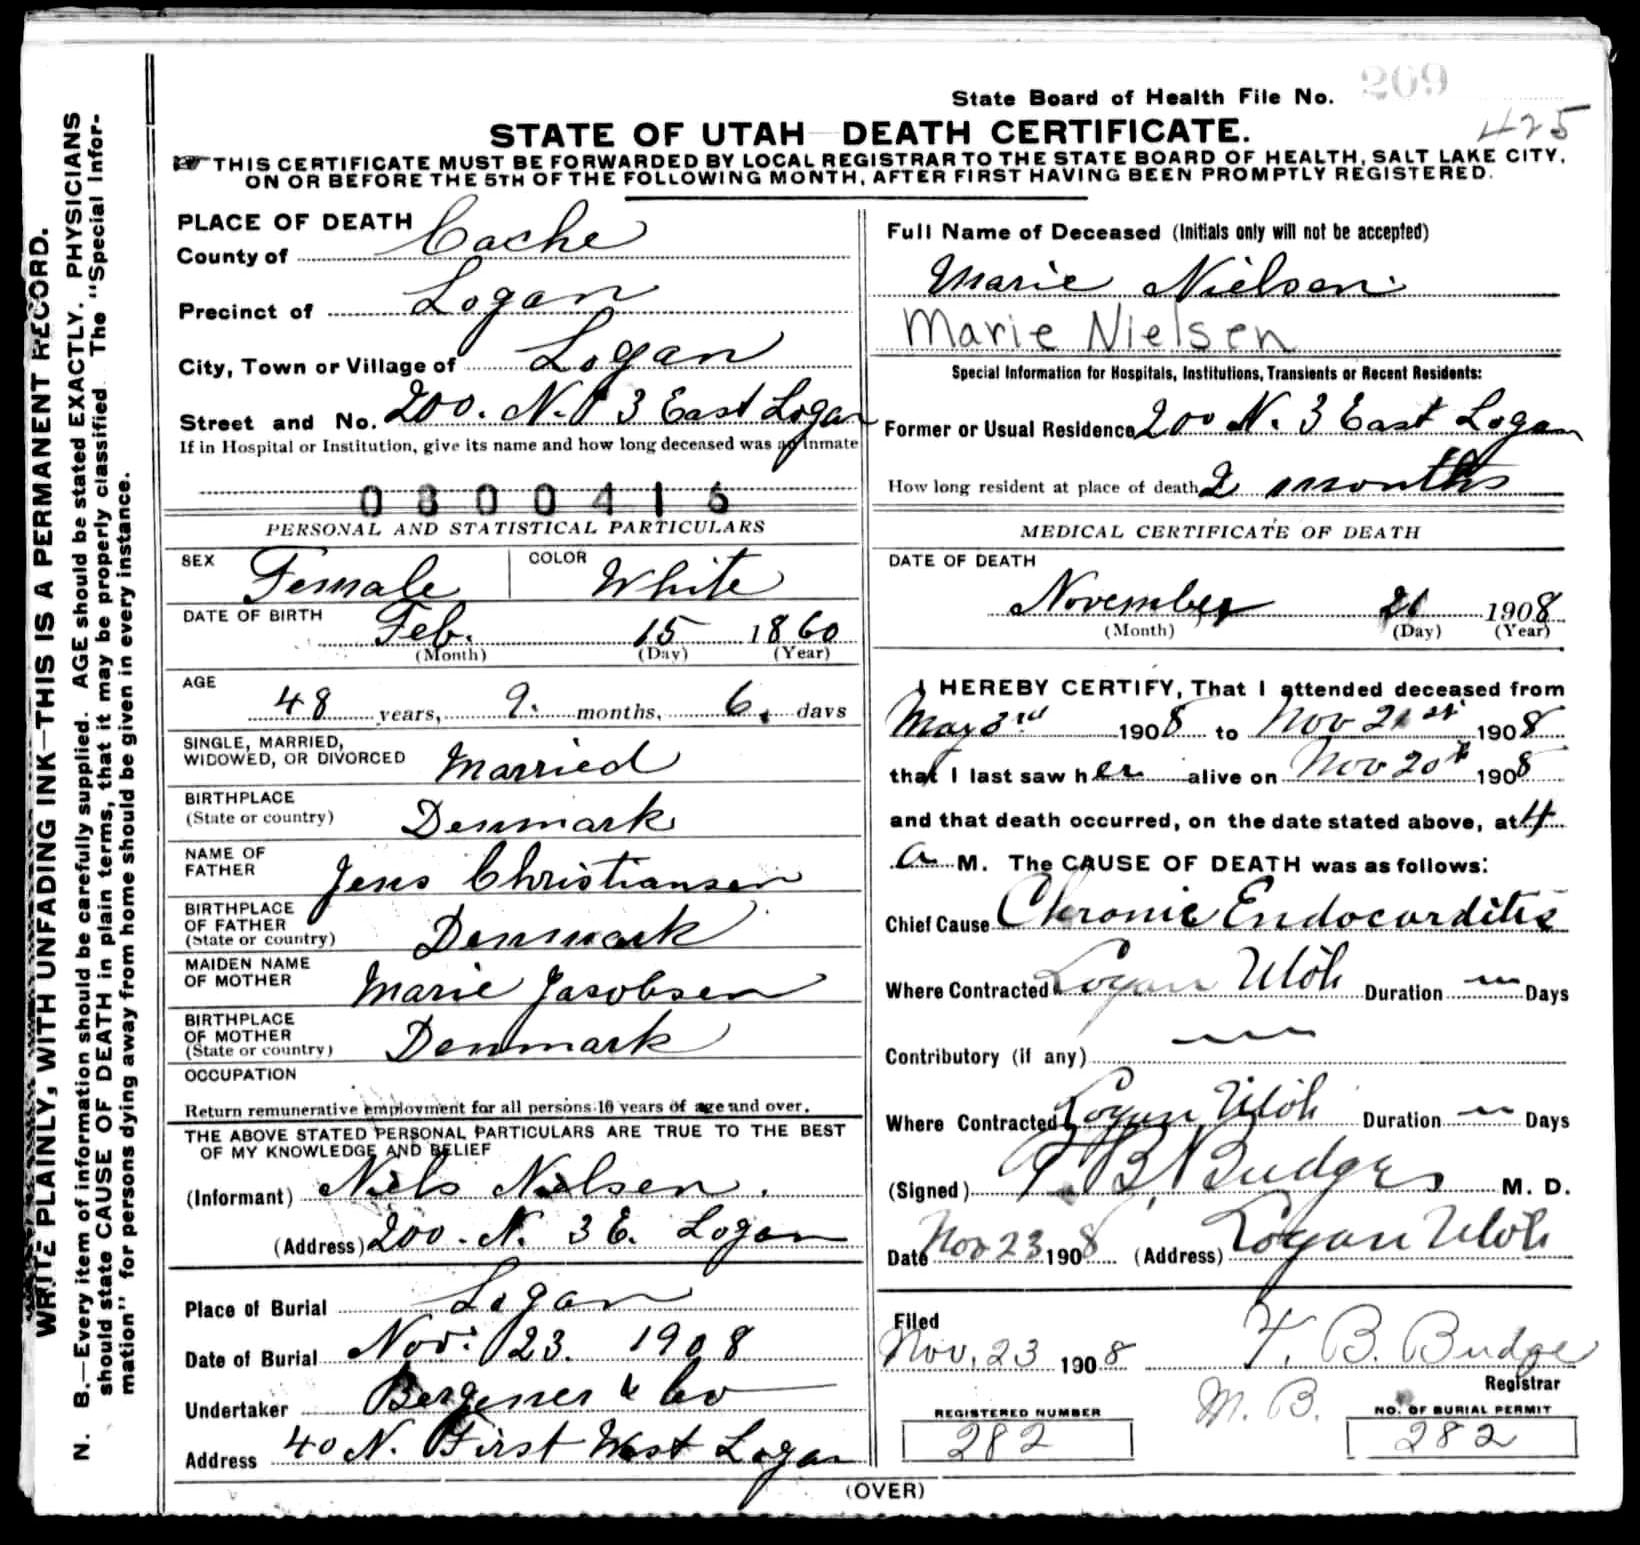 State Board of Health File No. 209
425
STATE OF UTAH DEATH CERTIFICATE.
THIS CERTIFICATE MUST BE FORWARDED BY LOCAL REGISTRAR TO THE STATE BOARD OF HEALTH, SALT LAKE CITY,
ON OR BEFORE THE 5TH OF THE FOLLOWING MONTH, AFTER FIRST HAVING BEEN PROMPTLY REGISTERED.
WRITE PLAINLY, WITH UNFADING INK—THIS IS A PERMANENT RECORD.
N. B.—Every item of information should be carefully supplied. AGE should be stated EXACTLY. PHYSICIANS
should state CAUSE OF DEATH in plain terms, that it may be properly classified. The "Special Infor-
mation" for persons dying away from home should be given in every instance.
PLACE OF DEATH
County of Cache
Precinct of Logan
City, Town or Village of Logan
Street and No. 200. N. 3 East Logan
If in Hospital or Institution, give its name and how long deceased was an inmate
0800416
PERSONAL AND STATISTICAL PARTICULARS
SEX Female COLOR White
DATE OF BIRTH Feb. 15 1860
(Month) (Day) (Year)
AGE
48 years, 9. months, 6. days
SINGLE, MARRIED,
WIDOWED, OR DIVORCED Married
BIRTHPLACE
(State or country) Denmark
NAME OF
FATHER Jens Christiansen
BIRTHPLACE
OF FATHER
(State or country) Denmark
MAIDEN NAME
OF MOTHER Marie Jacobsen
BIRTHPLACE
OF MOTHER
(State or country) Denmark
OCCUPATION
Return remunerative employment for all persons 10 years of age and over.
THE ABOVE STATED PERSONAL PARTICULARS ARE TRUE TO THE BEST
OF MY KNOWLEDGE AND BELIEF
(Informant) Niels Nielsen.
(Address) 200. N. 3 E. Logan
Place of Burial Logan
Date of Burial Nov. 23. 1908
Undertaker & Co
Address 40 N. First West Logan
Full Name of Deceased (Initials only will not be accepted)
Marie Nielsen
Marie Nielsen
Special Information for Hospitals, Institutions, Transients or Recent Residents:
Former or Usual Residence 200 N. 3 East Logan
How long resident at place of death 2 months
MEDICAL CERTIFICATE OF DEATH
DATE OF DEATH
November 21 1908
(Month) (Day) (Year)
I HEREBY CERTIFY, That I attended deceased from
May 3rd 1908 to Nov 21st 1908
that I last saw her alive on Nov 20th 1908
and that death occurred, on the date stated above, at 4
a M. The CAUSE OF DEATH was as follows:
Chief Cause Chronic Endocarditis
Where Contracted Logan Utah Duration Days
Contributory (if any)
Where Contracted Logan Utah Duration Days
(Signed) F. B. Budge M. D.
Date Nov 23 1908 (Address) Logan Utah
Filed
Nov. 23 1908 F. B. Budge
Registrar
M. B.
REGISTERED NUMBER
282
NO. OF BURIAL PERMIT
282
(OVER)